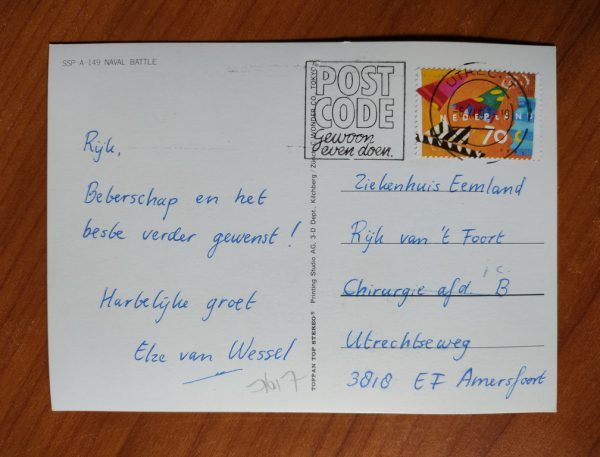 SSP-A-149 NAVAL BATTLE
Rijk,
Beberschap en het
besbe verder gewenst!
Harbelijke groet
Elze van Wessel
TOPPAN TOP STEREO® Printing Studio AG, 3-D Dept., Kilchberg / Zürich WONDER CO. TOKYO
POST
CODE
gewoon
even doen.
UTRECHT
NEDERLAND
70 c
Ziekenhuis Eemland
Rijk van 't Foort
i.c.
Chirurgie afd. B
Utrechbseweg
3818 EF Amersfoort